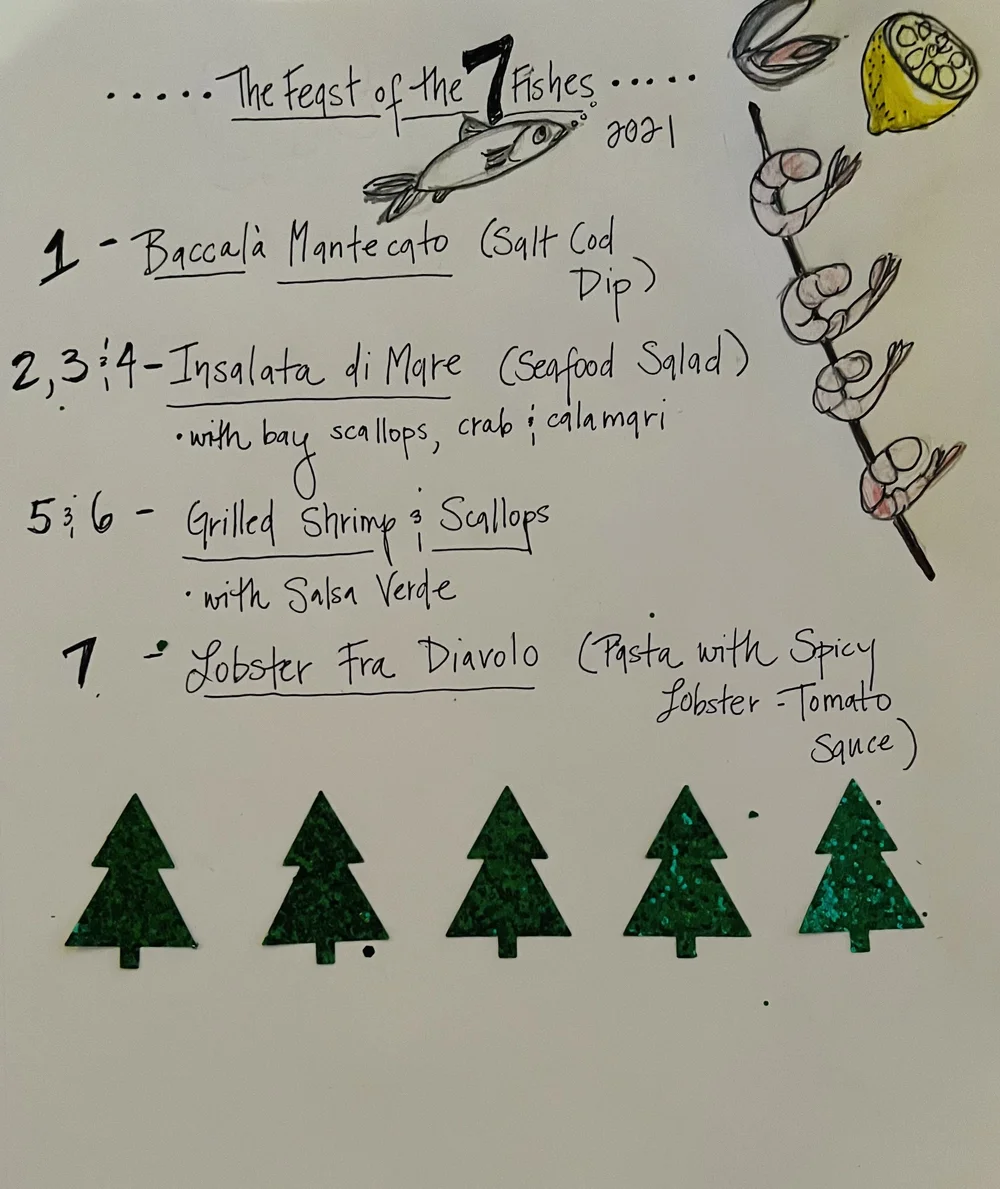 ..... The Feast of the 7 Fishes .....
2021
1 - Baccalà Mantecato (Salt Cod
Dip)
2, 3 & 4 - Insalata di Mare (Seafood Salad)
• with bay scallops, crab & calamari
5 & 6 - Grilled Shrimp & Scallops
• with Salsa Verde
7 - Lobster Fra Diavolo (Pasta with Spicy
Lobster - Tomato
Sauce)